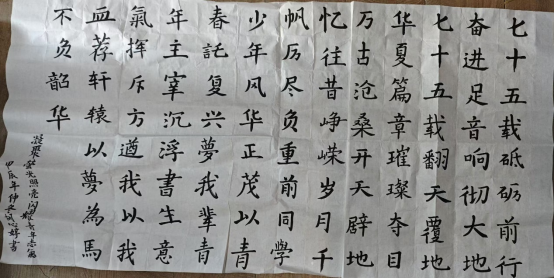 七十五载砥砺前行
奋进足音响彻大地
七十五载翻天覆地
华夏篇章璀璨夺目
万古沧桑开天辟地
忆往昔峥嵘岁月千
帆历尽负重前同学
少年风华正茂以青
春託复兴夢我辈青
年主宰沉浮書生意
氣挥斥方遒我以我
血荐轩辕以夢為馬
不负韶华
甲辰年仲